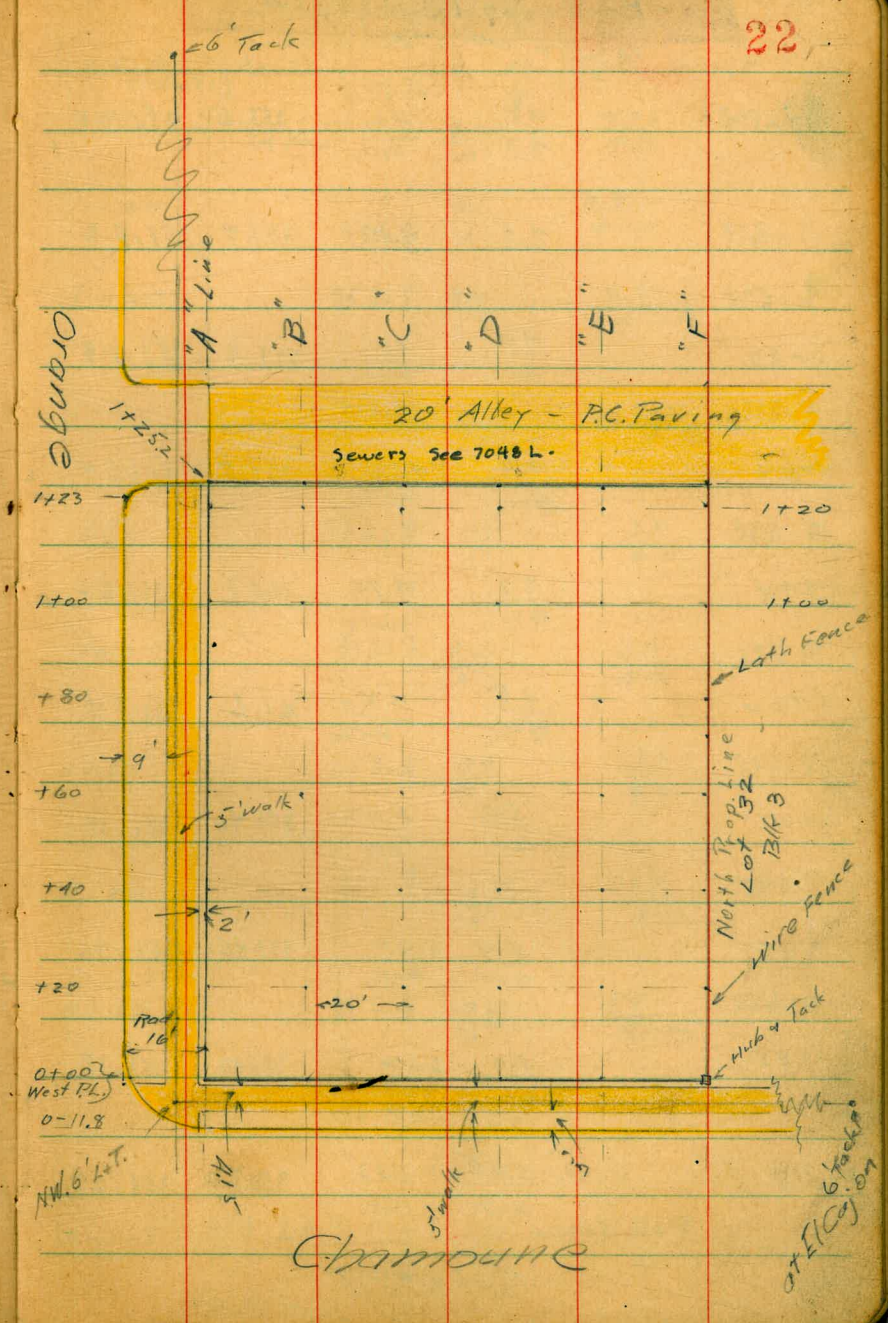 22
6' Tack
"A" Line
"B"
"C"
"D"
"E"
"F"
Orange
20' Alley - P.C. Paving
Sewers See 7048 L.
1+25.2
1+23
1+20
1+00
1+00
Lath Fence
+80
9'
+60
5' walk
North Prop. Line
Lot 32
Blk 3
+40
2'
Wire Fence
+20
20'
Rad.
16'
Hub & Tack
0+00
West P.L.
0-11.8
N.W. 6' L&T.
5'
5' walk
6' Tack
at El Cajon
Chamoune